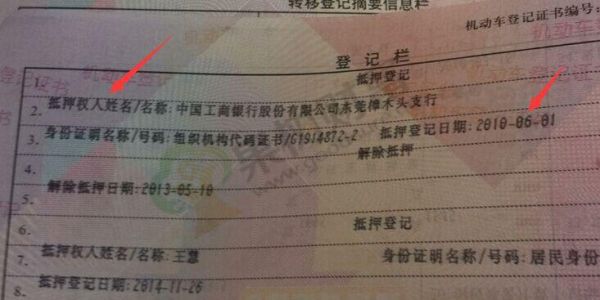 转移登记摘要信息栏
机动车登记证书编号:
登记栏
1. 抵押登记
2. 抵押权人姓名/名称: 中国工商银行股份有限公司东莞樟木头支行
3. 身份证明名称/号码: 组织机构代码证书/G1914872-2 抵押登记日期: 2010-06-01
4. 解除抵押
5. 解除抵押日期: 2013-05-10
6. 抵押登记
7. 抵押权人姓名/名称: 王慧 身份证明名称/号码: 居民身份
8. 抵押登记日期: 2014-11-26